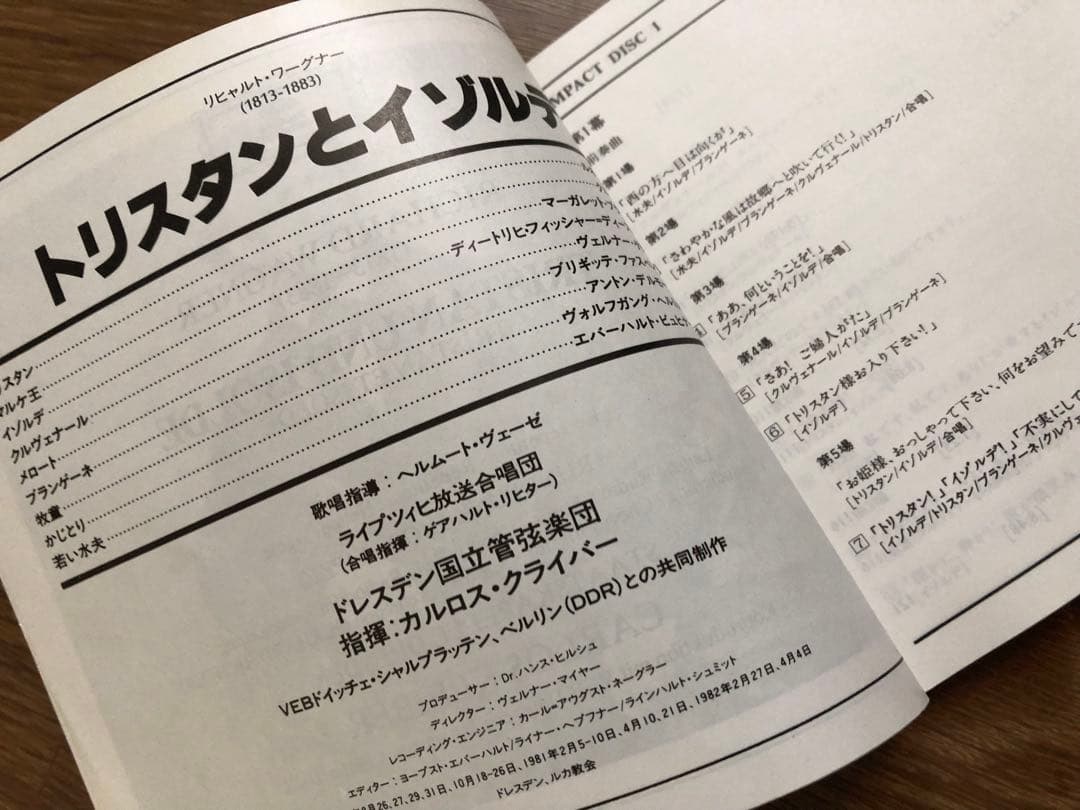 リヒャルト・ワーグナー
(1813-1883)
トリスタンとイゾルデ
マーガレット・
ディートリヒ・フィッシャー=ディー
ヴェルナー・
ブリギッテ・ファス
アントン・デル
ヴォルフガング・ヘル
エバーハルト・ビュヒ
リスタン
マルケ王
イゾルデ
クルヴェナール
メロート
ブランゲーネ
牧童
かじとり
若い水夫
歌唱指導:ヘルムート・ヴェーゼ
ライプツィヒ放送合唱団
(合唱指揮:ゲアハルト・リヒター)
ドレスデン国立管弦楽団
指揮:カルロス・クライバー
VEBドイッチェ・シャルプラッテン、ベルリン(DDR)との共同制作
プロデューサー:Dr.ハンス・ヒルシュ
ディレクター:ヴェルナー・マイヤー
レコーディング・エンジニア:カール=アウグスト・ネーグラー
エディター:ヨープスト・エバーハルト/ライナー・ヘプフナー/ラインハルト・シュミット
26、27、29、31日、10月18-26日、1981年2月5-10日、4月10、21日、1982年2月27日、4月4日
ドレスデン、ルカ教会
MPACT DISC 1
第1幕
前奏曲
第1場
「西の方へ目は向くが」
[水夫/イゾルデ/ブランゲーネ]
第2場
「さわやかな風は故郷へと吹いて行く!」
[水夫/イゾルデ/ブランゲーネ/クルヴェナール/トリスタン/合唱]
第3場
「ああ、何ということを!」
[ブランゲーネ/イゾルデ/合唱]
第4場
5 「さあ! ご婦人がた」
[クルヴェナール/イゾルデ/ブランゲーネ]
6 「トリスタン様お入り下さい!」
[イゾルデ]
第5場
「お姫様、おっしゃって下さい、何をお望みで
[トリスタン/イゾルデ/合唱]
7 「トリスタン!」「イゾルデ!」「不実にして
[イゾルデ/トリスタン/ブランゲーネ/クルヴェナ